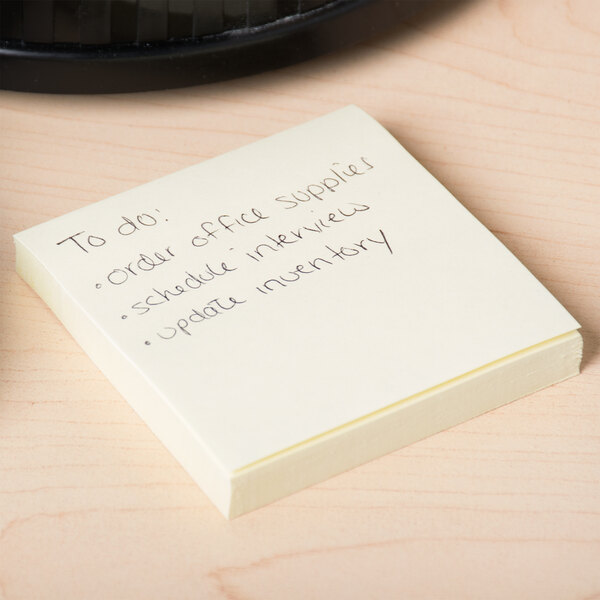 To do:
• order office supplies
• schedule interview
• update inventory